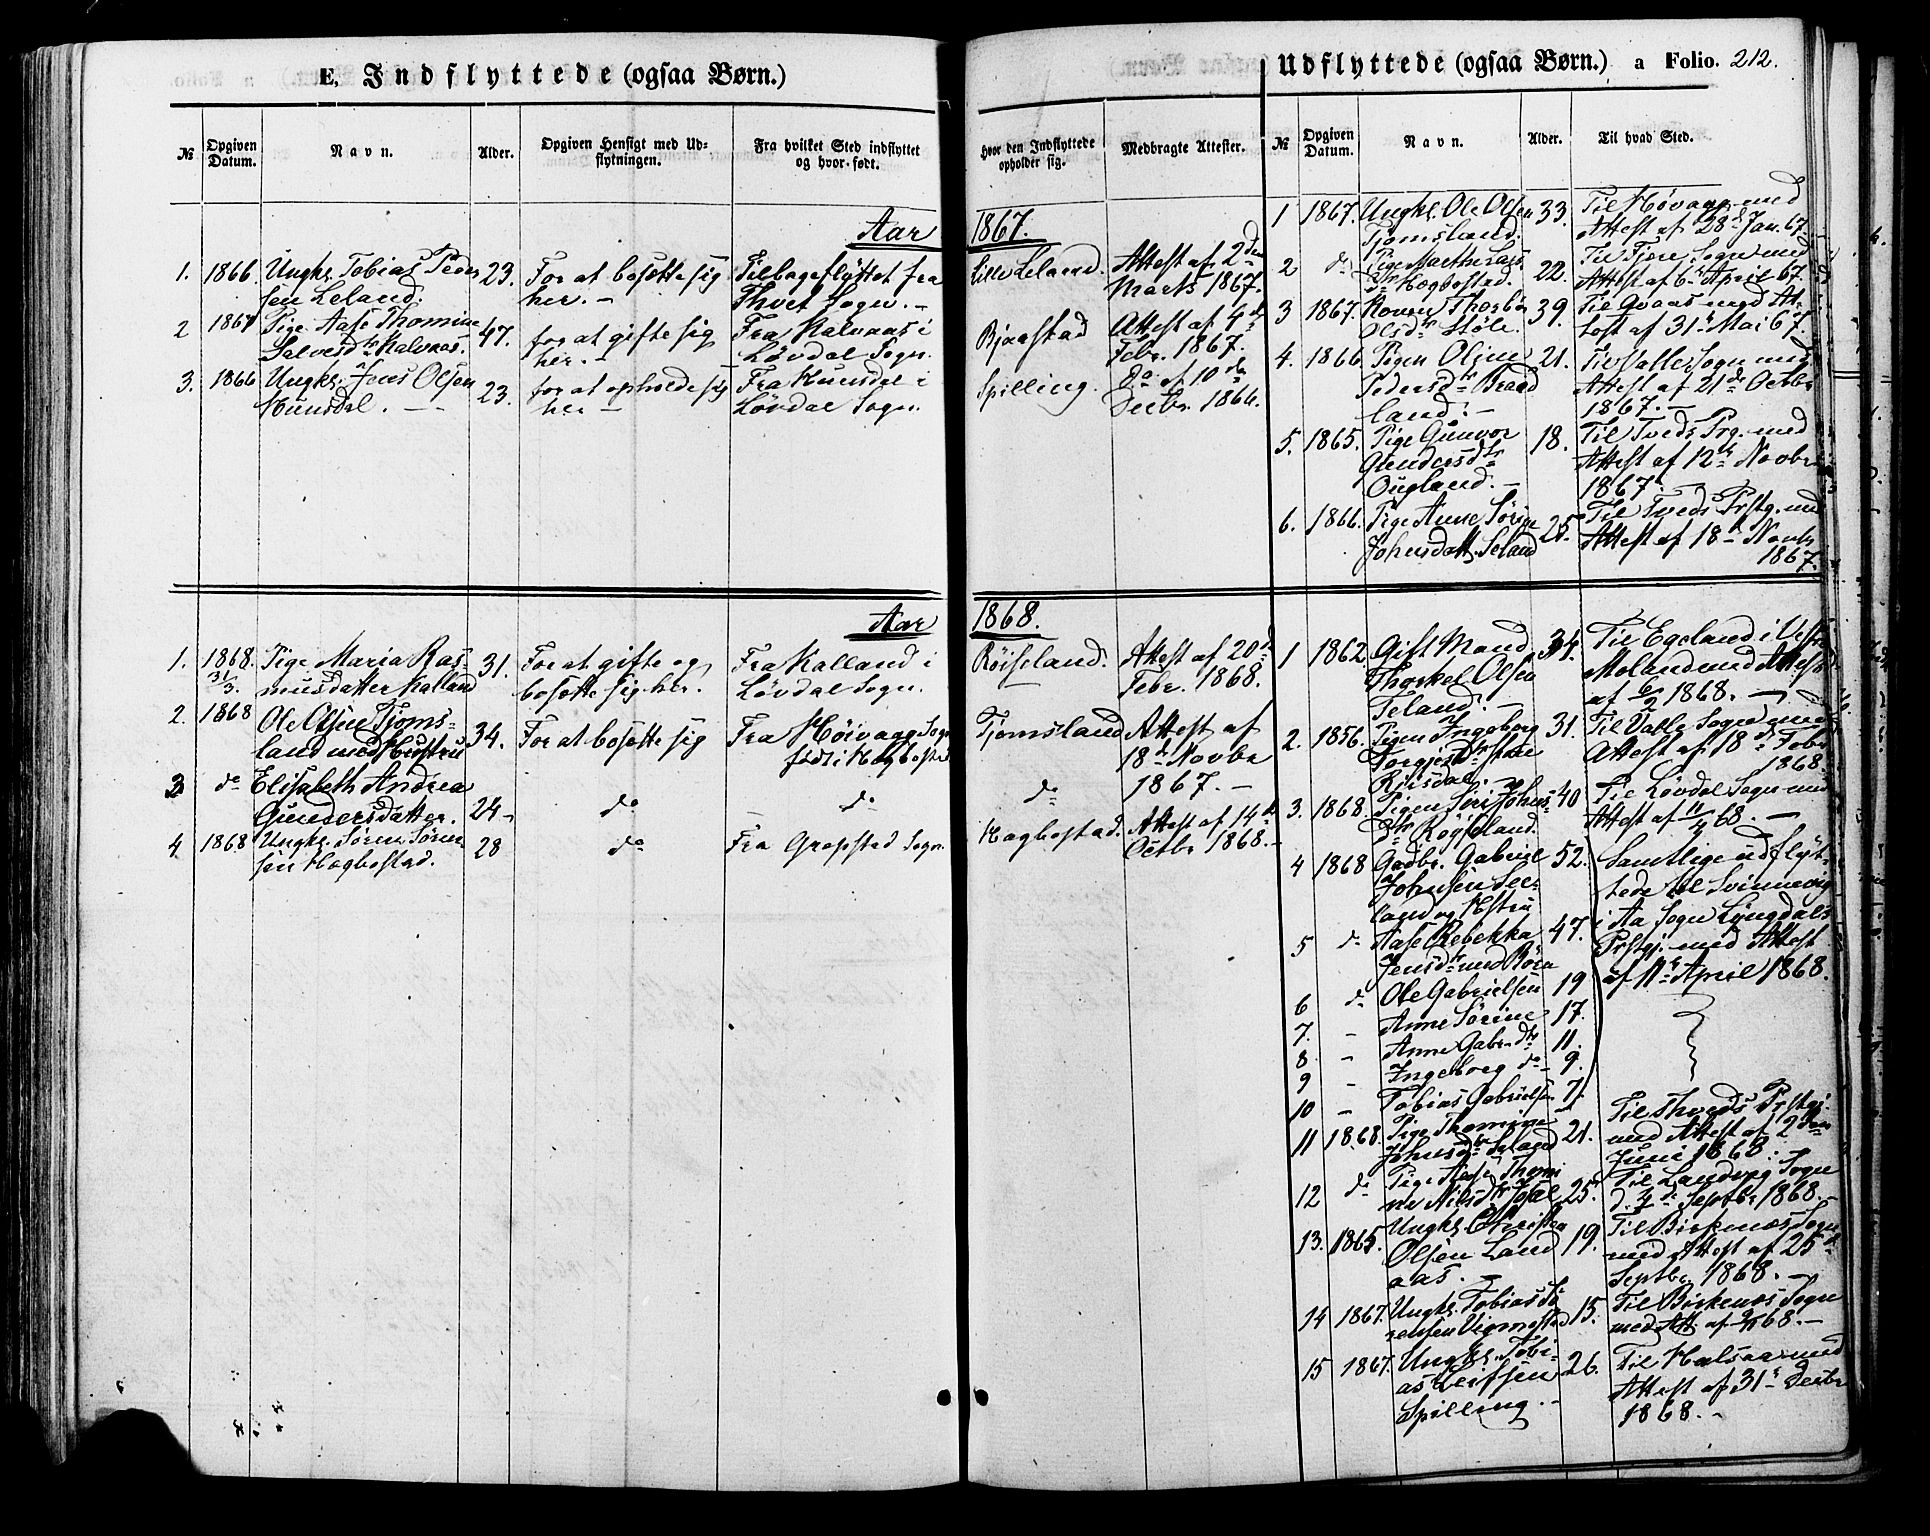 E. Indflyttede (ogsaa Børn.)
№ Opgiven Datum. Navn. Alder. Opgiven Hensigt med Udflytningen. Fra hvilket Sted indflyttet og hvor født.
Aar
1. 1866 Ungk. Tobias Peder 23. For at bosætte sig Tilbageflyttet fra
sen Leland. her. – Thvet Sogn. –
2 1867 Pige Aase Thomine 47. for at gifte sig Fra Kalvaas i
Salvesdtr Kalvaas. her. – Løvdal Sogn.
3. 1866 Ungk. Jens Olsen 23. for at opholde sig Fra Hunsdal i
Hunsdal. – her – Løvdal Sogn.
Aar
1. 1868. Pige Maria Ras- 31. For at gifte og Fra Kalland i
31/3. musdatter Kalland bosætte sig her. Løvdal Sogn.
2. 1868 Ole Olsen Tjoms- 34. For at bosætte sig Fra Høivaag Sogn
land med Hustru født i Høgbostad
3 do Elisabeth Andrea
Gundersdatter. 24 – do – do
4 1868 Ungk. Søren Søren- 28 do Fra Grepstad Sogn
sen Hagbostad.
Udflyttede (ogsaa Børn.) a Folio. 212.
Hvor den Indflyttede opholder sig. Medbragte Attester. № Opgiven Datum. Navn. Alder. Til hvad Sted.
1867.
Lille Leland. Attest af 2den
Marts 1867.
Bjaastad Attest af 4de
Febr. 1867.
Spilling. Do af 10de
Decbr. 1866.
1868.
Røiseland. Attest af 20d
Febr. 1868.
Tjomsland Attest af
18d Novbr
do 1867. –
Hagbostad. Attest af 14d
Octbr 1868. –
1 1867. Ungk. Ole Olsen 33. Til Høvaag med
Tjomsland. Attest af 28d Jan. 67.
2 do Pige Marthe Lars 22. Til Fjere Sogn med
Dtr Høgbostad. Attest af 6te April 67.
3 1867. Konen Thorbø 39. Til Qvaas med At-
Olsdtr Støle. test af 31te Mai 67.
4. 1866. Pigen Oline 21. Til Valle Sogn med
Pedersdtr Braad Attest af 21de Octbr
land. – 1867. –
5. 1865. Pige Gunvor 18. Til Tveds Prg. med
Gundersdtr Attest af 12te Novbr
Ougland. – 1867
6. 1866. Pige Anne Sørine 25. Til Tveds Prstg. med
Johnsdatt. Seland Attest af 18d Novbr
1867.
1 1862 Gift Mand 34. Til Egeland i Vestre
Thorkel Olsen Moland med Attest
Seland. – af 6/2 1868. –
2. 1856. Pigen Ingeborg 31. Til Valle Sogn med
Attest af 18d Febr
Riisdal. – 1868.
3. 1868. Pigen Siri Johns- 40 Til Løvdal Sogn med
Dtr Røyseland. Attest af 11/4 68. –
4 1868 Gadbr. Gabriel 52. Samtlige udflyt-
Johnsen See- tede til Svinnevig
land og Hstru i Aa Sogn Lyngdals
5 do Aase Rebekka 47. Prstgj. med Attest
Jensdtr med Børn af 11te April 1868.
6 do Ole Gabrielsen 19
7. – Anne Sørine 17.
8 – Anne Gabr. dtr 11.
9 – Ingeborg do 9.
10 – Tobias Gabrielsen 7.
11 1868. Pige Thomine 21. Til Thveds Prstgj.
Johnsdtr Seland med Attest af 2den
Juni 1868.
12 do Pige Aase Thomi 25. Til Landvig Sogn
ne Nilsdtr d. 4de Septbr 1868. –
13. 1865. Ungk. Christen 19. Til Birkenæs Sogn
Olsen Land med Attest af 25d
aas. – Septbr 1868. –
14 1867. Ungk. Tobias Sø 15. Til Birkenæs Sogn
rensen Vigmostad med Att. af 68. –
15 1867. Ungk. Tobi- 26. Til Halsaa med
as Leifsen Attest af 31te Decbr
Spilling. – 1868. –